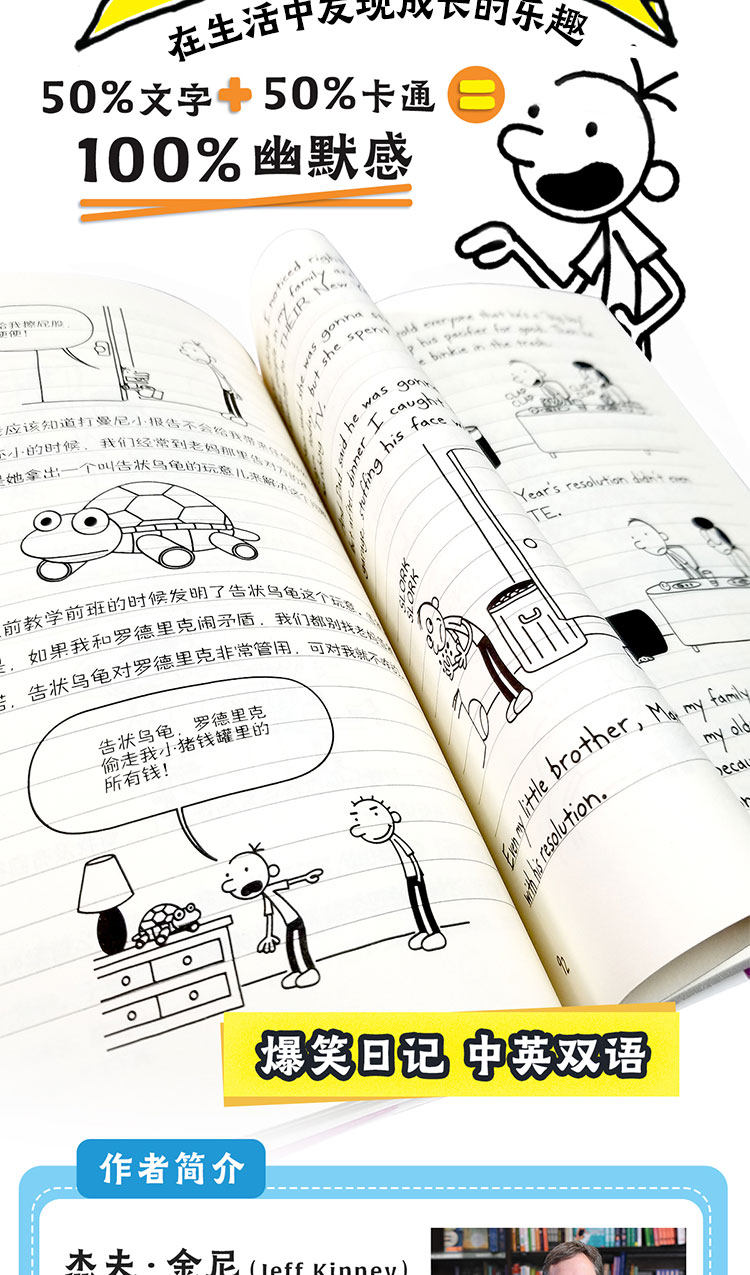 在生活中发现成长的乐趣
50%文字+50%卡通=
100%幽默感
给我擦屁股,
应该知道打曼尼小报告不会给我带来
小的时候,我们经常到老妈那里告对方的
她拿出一个叫告状乌龟的玩意儿来解决这个
前教学前班的时候发明了告状乌龟这个玩意,
如果我和罗德里克闹矛盾,我们都别找老妈
告状乌龟对罗德里克非常管用,可对我就不
告状乌龟,罗德里克
偷走我小猪钱罐里的
所有钱!
noticed
my family
THEIR New
he was gonna
but she spent
TV.
said he was gonna
dinner I caught
stuffing his face
SLORK
SLORK
Even my little brother,
with his resolution.
92
told everyone that he's a "big boy"
his pacifier for good. Then
binkie in the trash.
CLAP
CLAP
Year's resolution didn't even
my family
my old
爆笑日记 中英双语
作者简介
杰夫·金尼(Jeff Kinney)